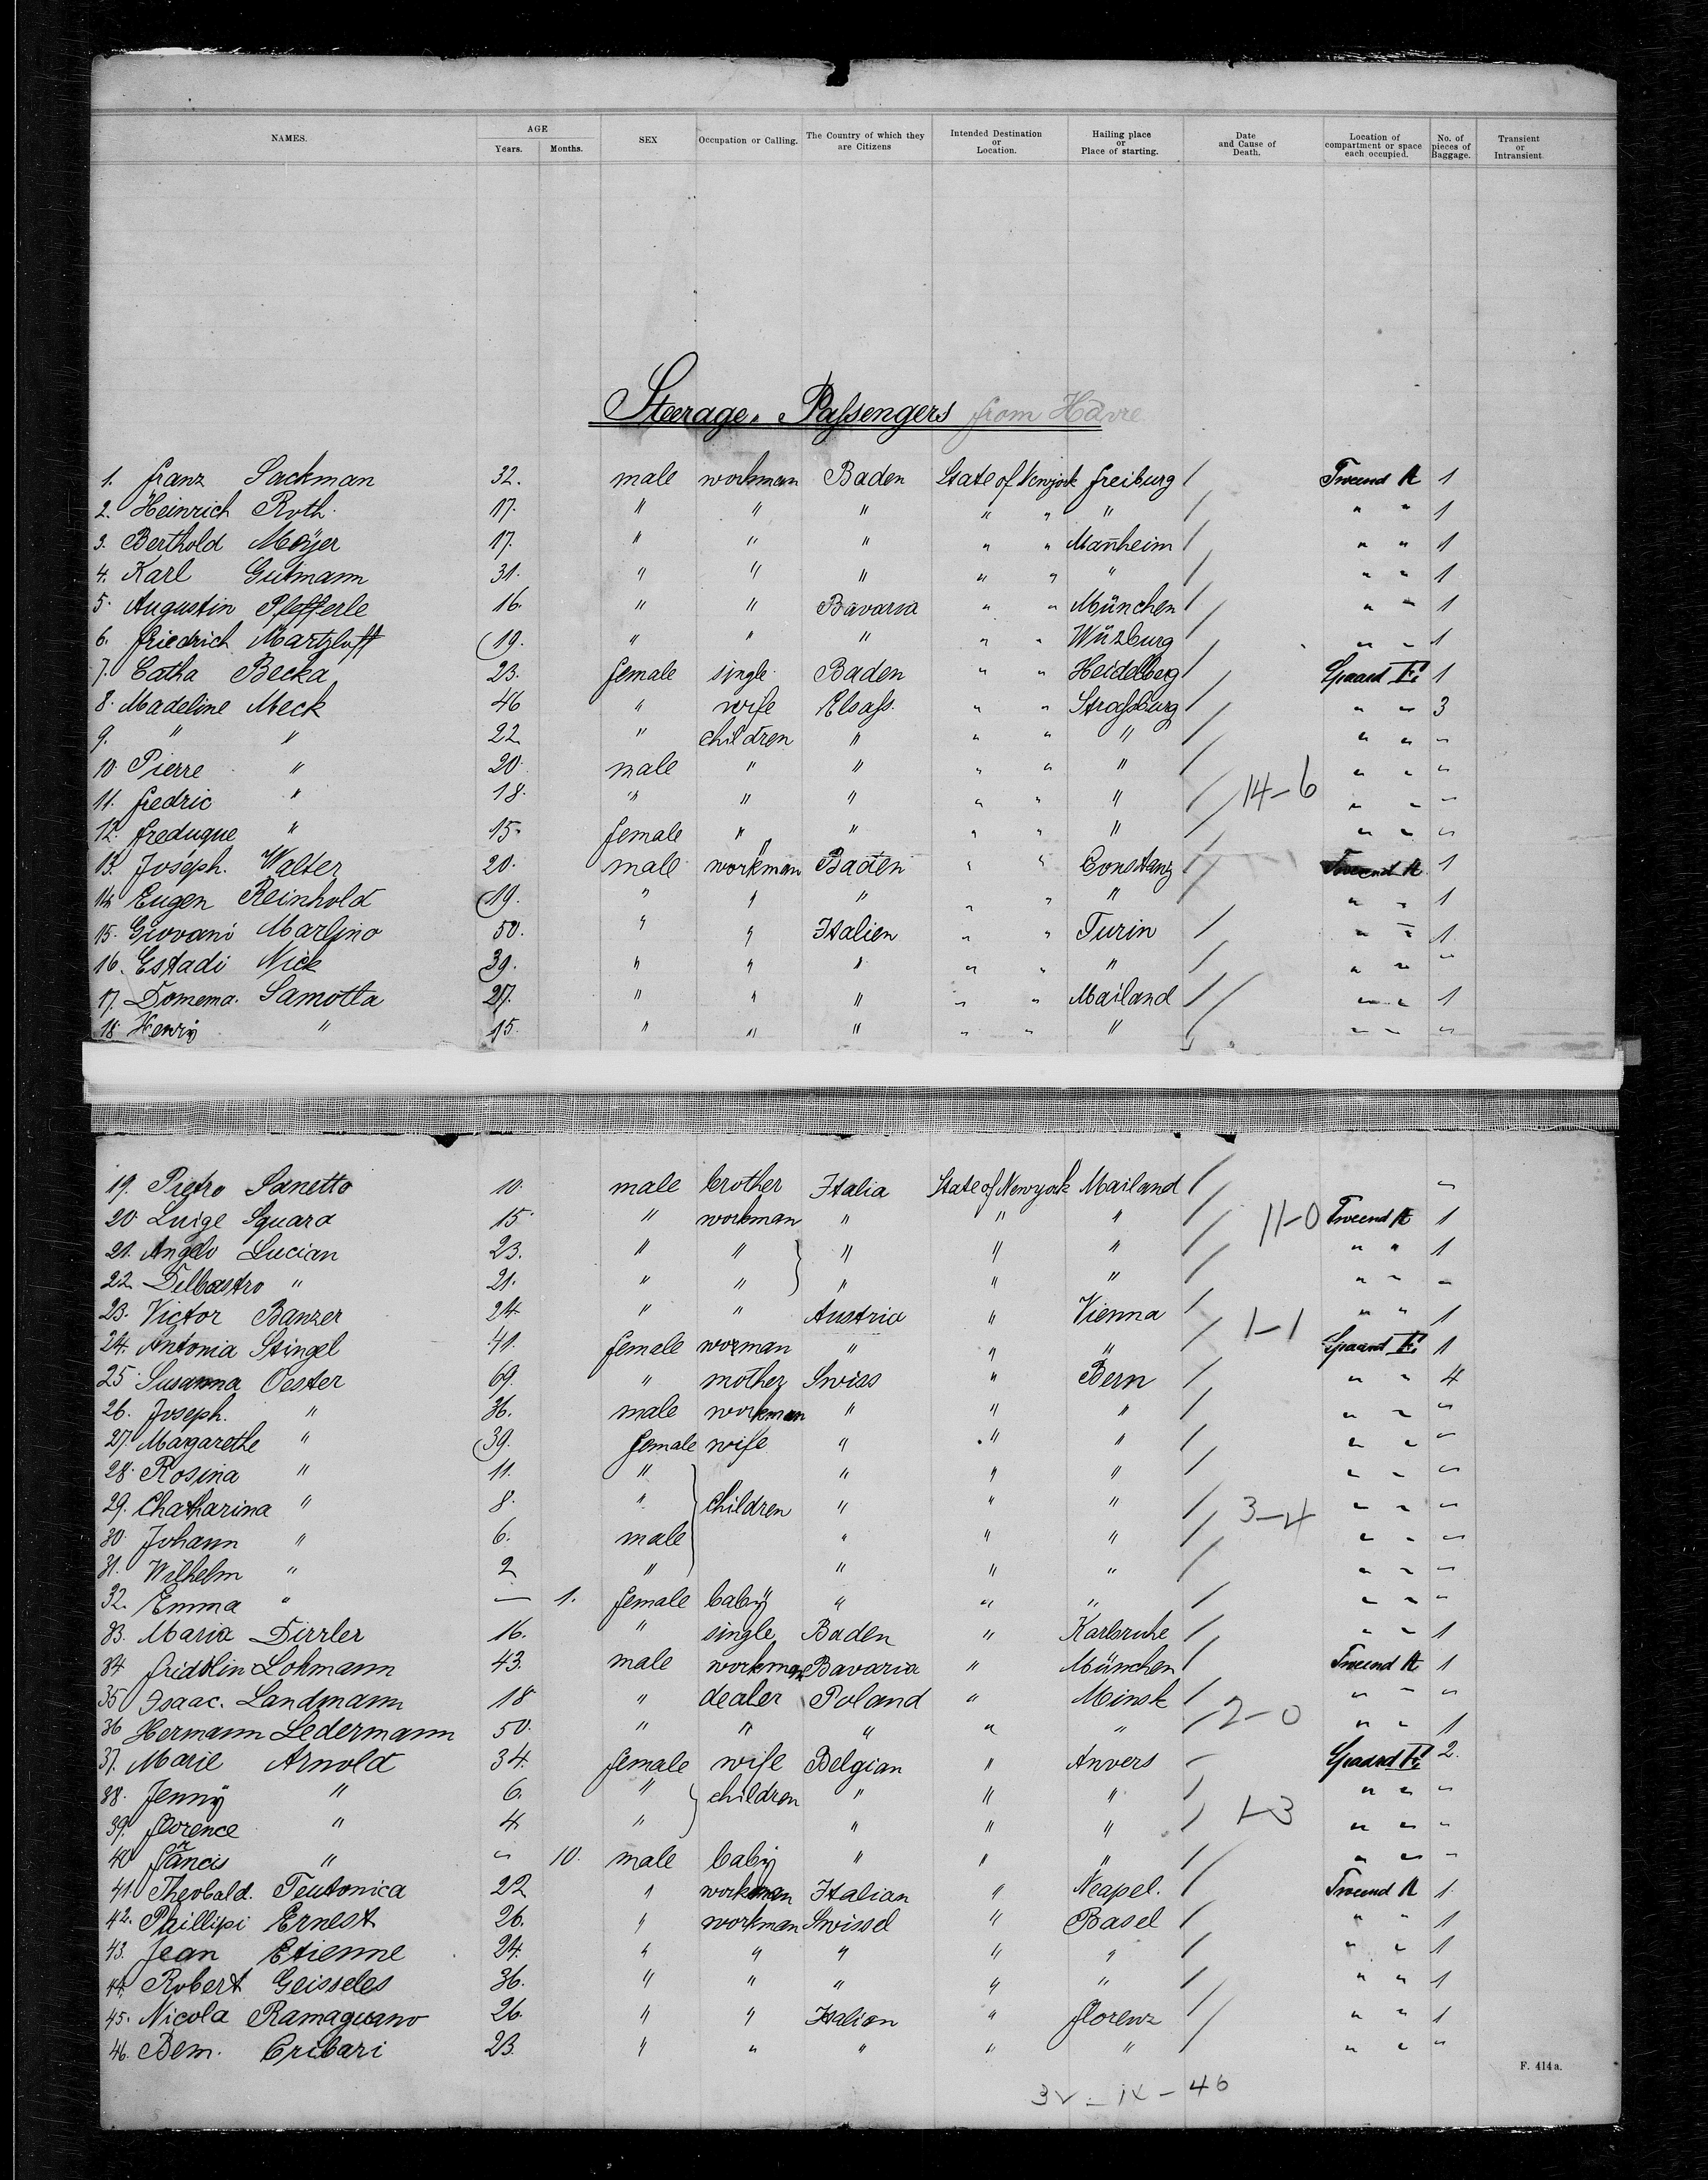 NAMES. AGE Years. Months. SEX Occupation or Calling. The Country of which they are Citizens Intended Destination or Location. Hailing place or Place of starting. Date and Cause of Death. Location of compartment or space each occupied. No. of pieces of Baggage. Transient or Intransient.
Steerage. Passengers from Havre
1. Franz Sackman 32. male workman Baden State of Newyork Freiburg / Tweend A 1
2. Heinrich Roth 17. " " " " " " / " " 1
3. Berthold Meÿer 17. " " " " " Manheim / " " 1
4. Karl Gutmann 31. " " " " " " / " " 1
5. Augustin Pfefferle 16. " " Bavaria " " München / " " 1
6. Friedrich Martzluff 19. " " " " " Würzburg / " " 1
7. Catha Becka 23. female single Baden " " Heidelberg / 1
8. Madeline Meck 46 " wife Elsass. " " Strassburg / " " 3
9. " " 22 " children " " " " / " " "
10. Pierre " 20. male " " " " " / " " "
11. Fredric " 18. " " " " " " / 14-6 " " "
12. Freduque " 15. female " " " " " / " " "
13. Joseph. Walter 20. male workman Baden " " Constanz / 1-1 Tweend A 1
14. Eugen Reinhold 19. " " " " " " " " 1
15. Giovani Marlino 50. " " Italien " " Turin / " " 1
16. Estadi Nick 39. " " " " " " / " " "
17. Domema. Samotta 27. " " " " " Mailand / " " 1
18. Henriÿ " 15. " " " " " " / " " "
19. Pietro Sanetto 10. male brother Italia State of Newyork Mailand / "
20. Luige Squara 15. " workman " " " / 11-0 Tweend A 1
21. Angelo Lucian 23. " " " " " / " " 1
22. Delbastro " 21. " " " " " / " " "
23. Victor Banzer 24. " " Austria " Vienna / " " 1
24. Antonia Stingel 41. female worman " " " / 1-1 1
25. Susanna Oester 69. " mother Swiss " Bern / " " 4
26. Joseph. " 36. male workman " " " / " " "
27. Margarethe " 39. female wife " " " / " " "
28. Rosina " 11. " " " " / " " "
29. Chatharina " 8. " children " " " / 3-4 " " "
30. Johann " 6. male " " " / " " "
31. Wilhelm " 2 " " " " / " " "
32. Emma " — 1. female babÿ " " " / " " "
33. Maria Dirrler 16. " single Baden " Karlsruhe / " " 1
34. Fridolin Lohmann 43. male workman Bavaria " München / Tweend A 1
35. Isaac. Landmann 18 " dealer Poland " Minsk / " " "
36 Hermann Ledermann 50. " " " " " / 2-0 " " 1
37. Marie Arnold 34. female wife Belgian " Anvers - 2.
38. Jennÿ " 6. " children " " " / " " "
39. Florence " 4 " " " " / 1-3 " " "
40 Francis " " 10. male babÿ " " " / " " "
41. Theobald. Teutonica 22 " workman Italian " Neapel. / Tweend A 1
42. Phillipi Ernest 26. " workman Swissel " Basel / " " 1
43. Jean Etienne 24. " " " " " / " " 1
44. Robert Geisseles 36. " " " " " / " " 1
45. Nicola Ramaguano 26. " " Italian " Florenz / " " 1
46. Bem. Cribari 23. " " " " " / " " "
F. 414a.